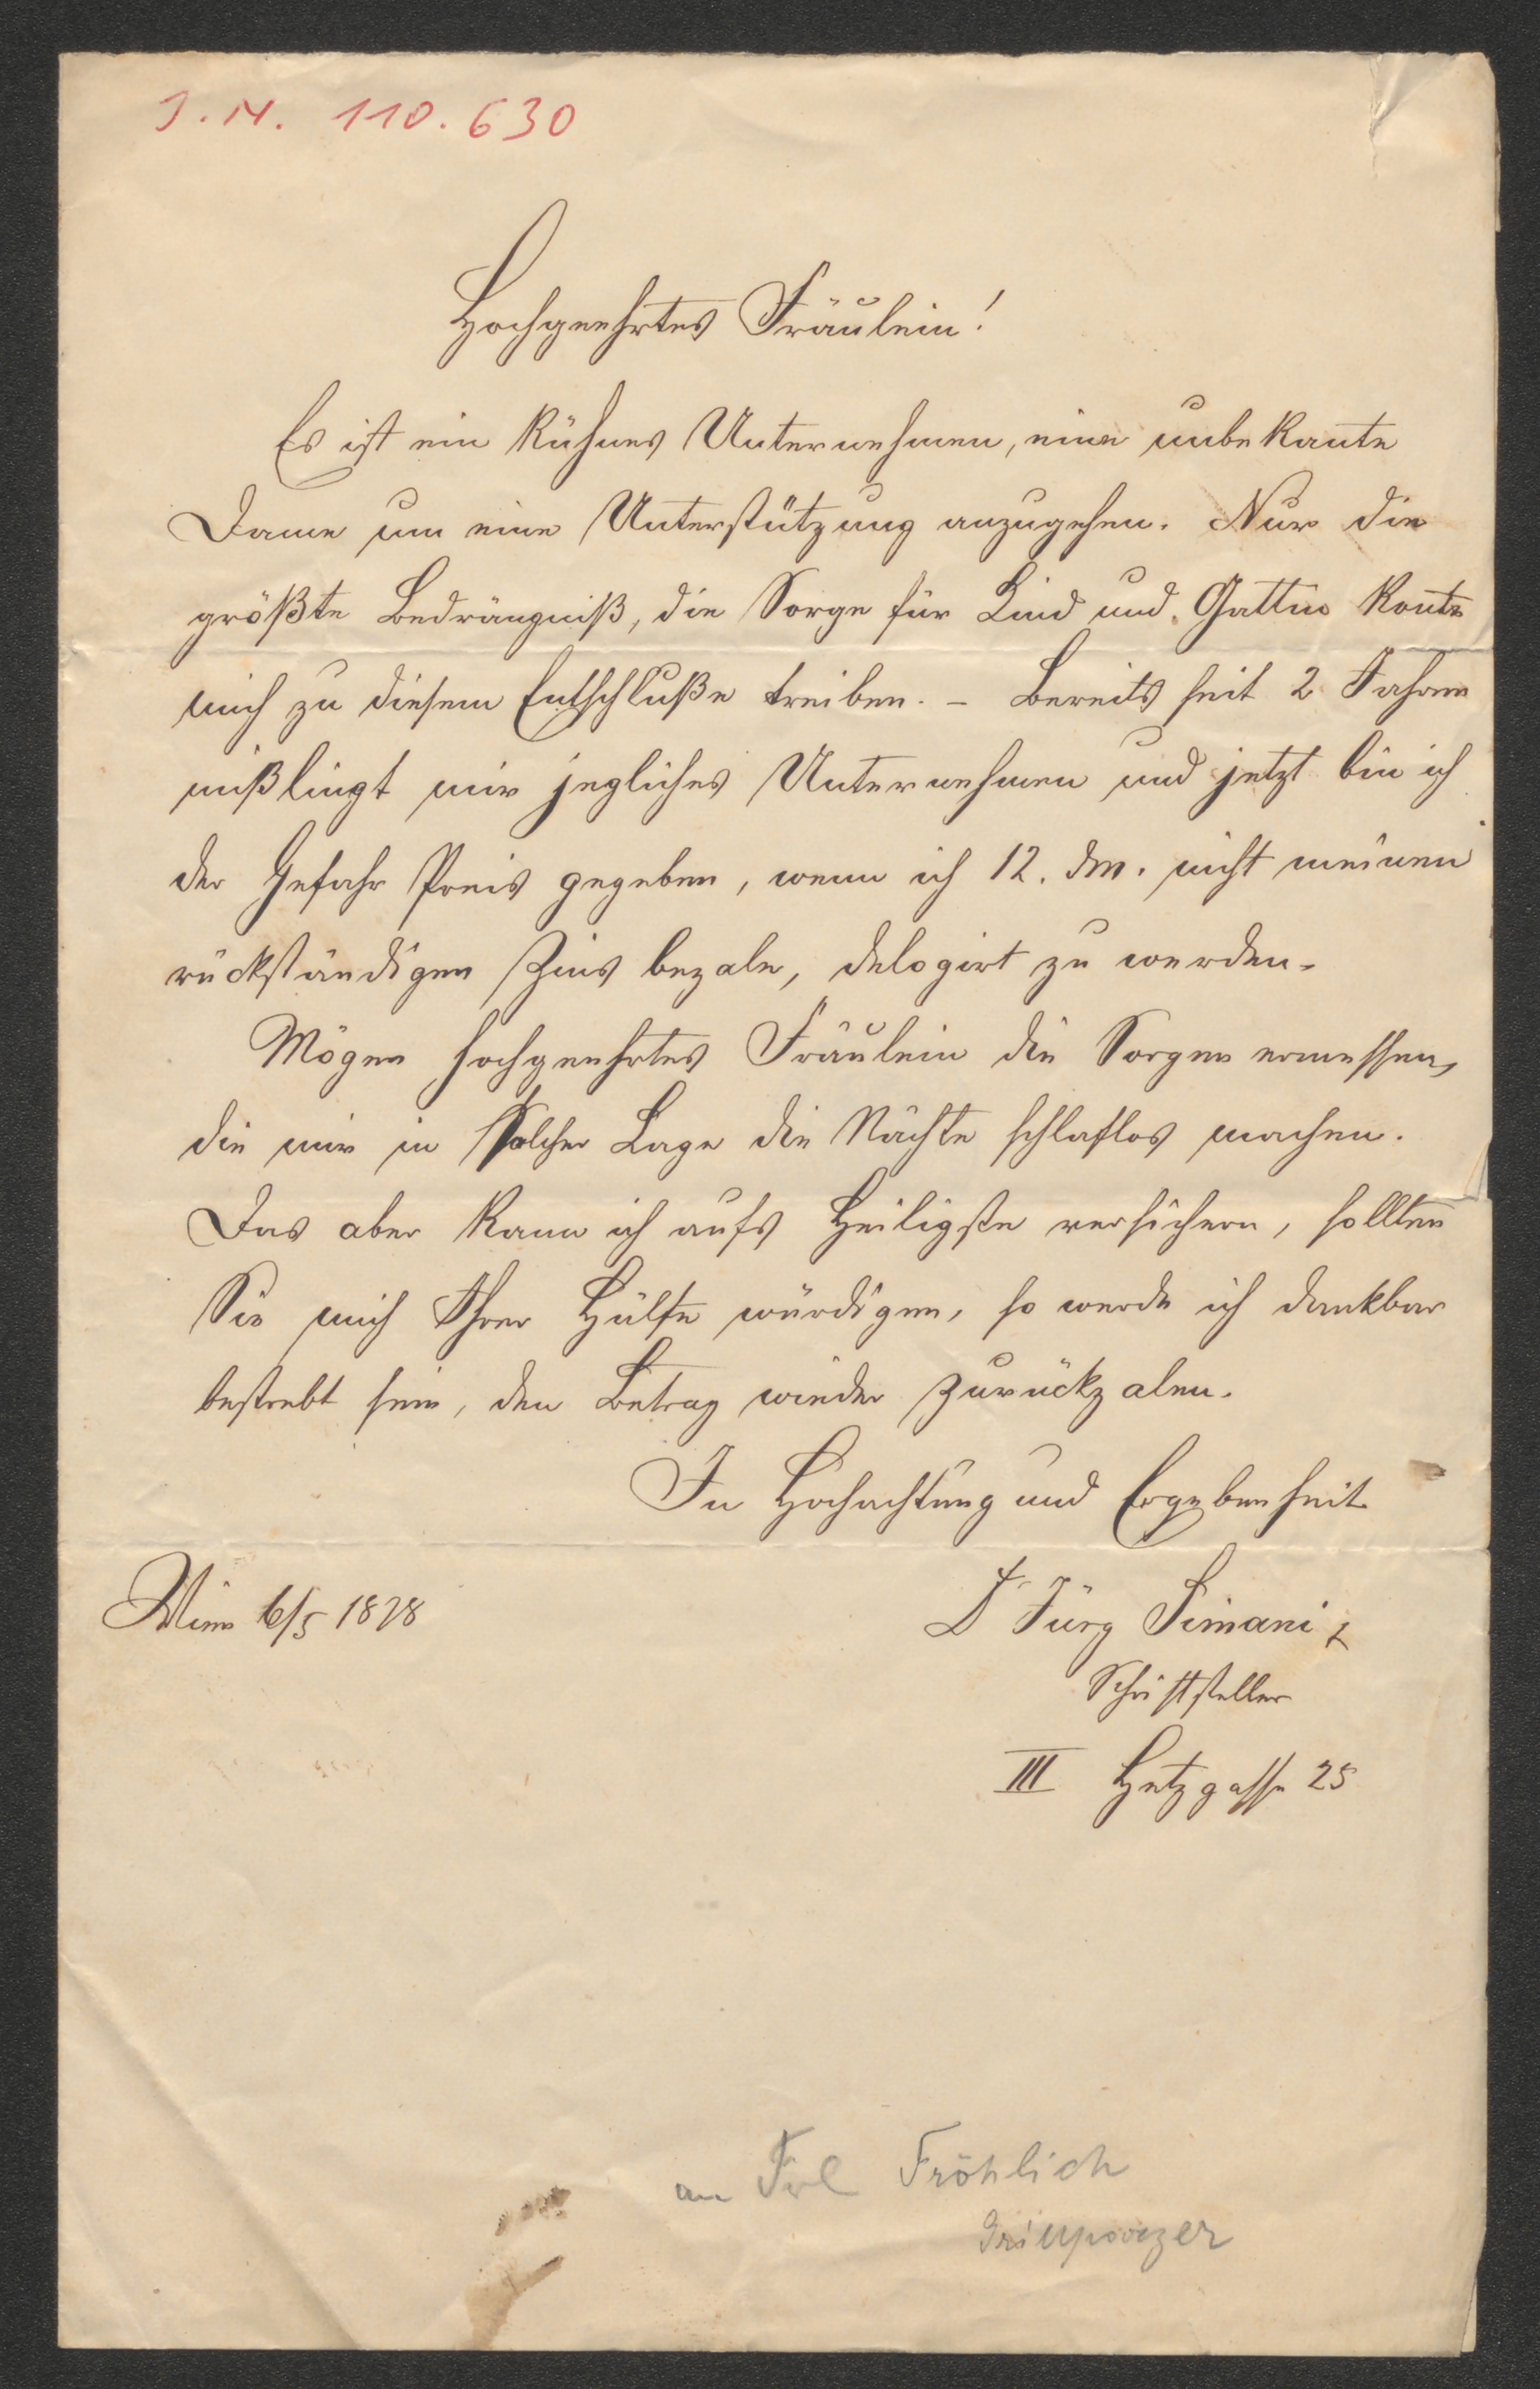 J.N. 110.630
Hochgeehrtes Fräulein!
Es ist ein kühnes Unternehmen, eine unbekante
Dame um eine Unterstützung anzugehen. Nur die
größte Bedrängniß, die Sorge für Kind und Gattin konte
mich zu diesem Entschluße treiben. – Bereits seit 2 Jahren
mißlingt mir jegliches Unternehmen und jetzt bin ich
der Gefahr Preis gegeben, wenn ich 12. dM. nicht meinen
rückständigen Zins bezale, delogirt zu werden.
Mögen hochgeehrtes Fräulein die Sorgen ermessen,
die mir in solcher Lage die Nächte schlaflos machen.
Das aber kann ich aufs Heiligste versichern, sollten
Sie mich Ihrer Hülfe würdigen, so werde ich dankbar
bestrebt sein, den Betrag wieder zurückzalen.
In Hochachtung und Ergebenheit
Wien 6/5 1878
Dr Jürg Simani
Schriftsteller
III Hetzgasse 25
an Frl Fröhlich
Grillparzer